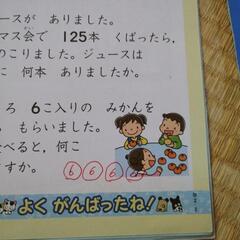 ースが ありました。
マス会で 125本 くばったら,
のこりました。ジュースは
に 何本 ありましたか。
ろ 6こ入りの みかんを
、 もらいました。
べると、何こ
すか。
6 6 6
よく がんばったね!